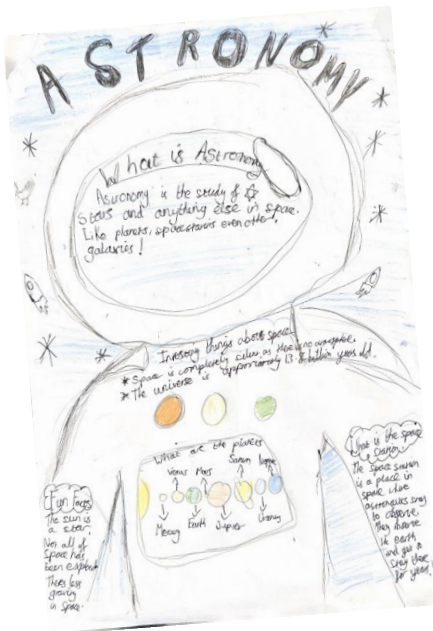 ASTRONOMY
What is Astronomy
Astronomy is the study of
stars and anything else in space.
Like planets, spacestations even other
galaxies!
Intresting things about space
* Space is completely silent as there is no atmosphere.
* The universe is approximately 13.8 billion years old.
What are the planets
Venus Mars Saturn
Mercury Earth Jupiter Uranus
Fun Facts
The sun is
a star.
Not all of
space has
been explored
Theres less
gravity
in space.
What is the space
station
The space station
is a place in
space where
astronauts stay
to observe
they above
the earth
and get a
stay there
for years!